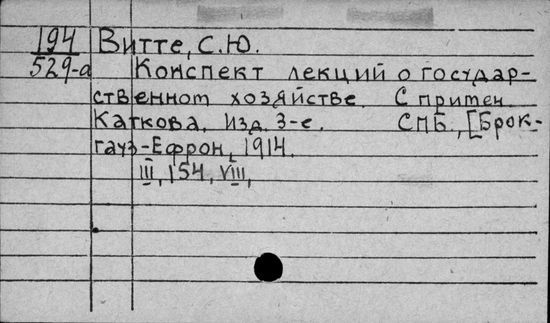 194 Витте, С.Ю.
529-а Конспект лекций о государ-
ственном хозяйстве. С примеч.
Каткова. Изд. 3-е. СПБ., [Брок-
гауз-Ефрон, 1914.
III, 154, VIII,